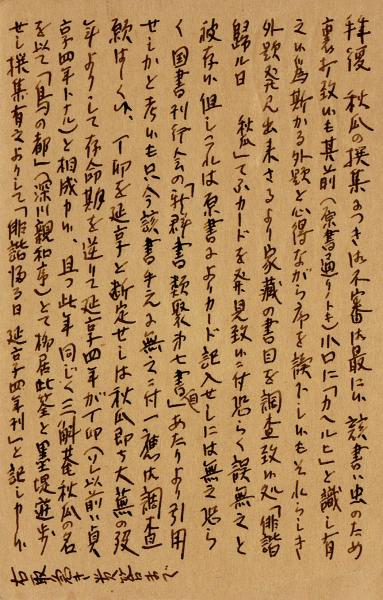 拝復 秋瓜の撰集につき御不審は最に候 該書は虫のため
裏打致候も其前(原書通りとも)小口に「カヘルヒ」と識し有
之候為斯かる外題と心得ながら序を読下し候もそれらしき
外題発見出来ざるより家蔵の書目を調査致候処「俳諧
歸ル日 秋瓜」てふカードを発見致候に付恐らく誤無之と
被存候 但しこれは原書によりカード記入せしには無之恐ら
く国書刊行会の「新群書類聚第七書目」あたりより引用
せしかと考候も只今該書手元に無之に付一応御調査
願はしく候、丁卯を延享と断定せしは秋瓜即ち大蕪の歿
年よりして存命期を逆りて延享四年が丁卯(ソレ以前ハ貞
享四年トナル)と相成申候 且つ此年同じく三斛菴秋瓜の名
を以て「鳥の都」(深川親和序)とて柳居此荃と墨堤遊歩
せし撰集有之よりして「俳諧帰る日 延享四年刊」と記し申候
右取急ぎ御返答まで